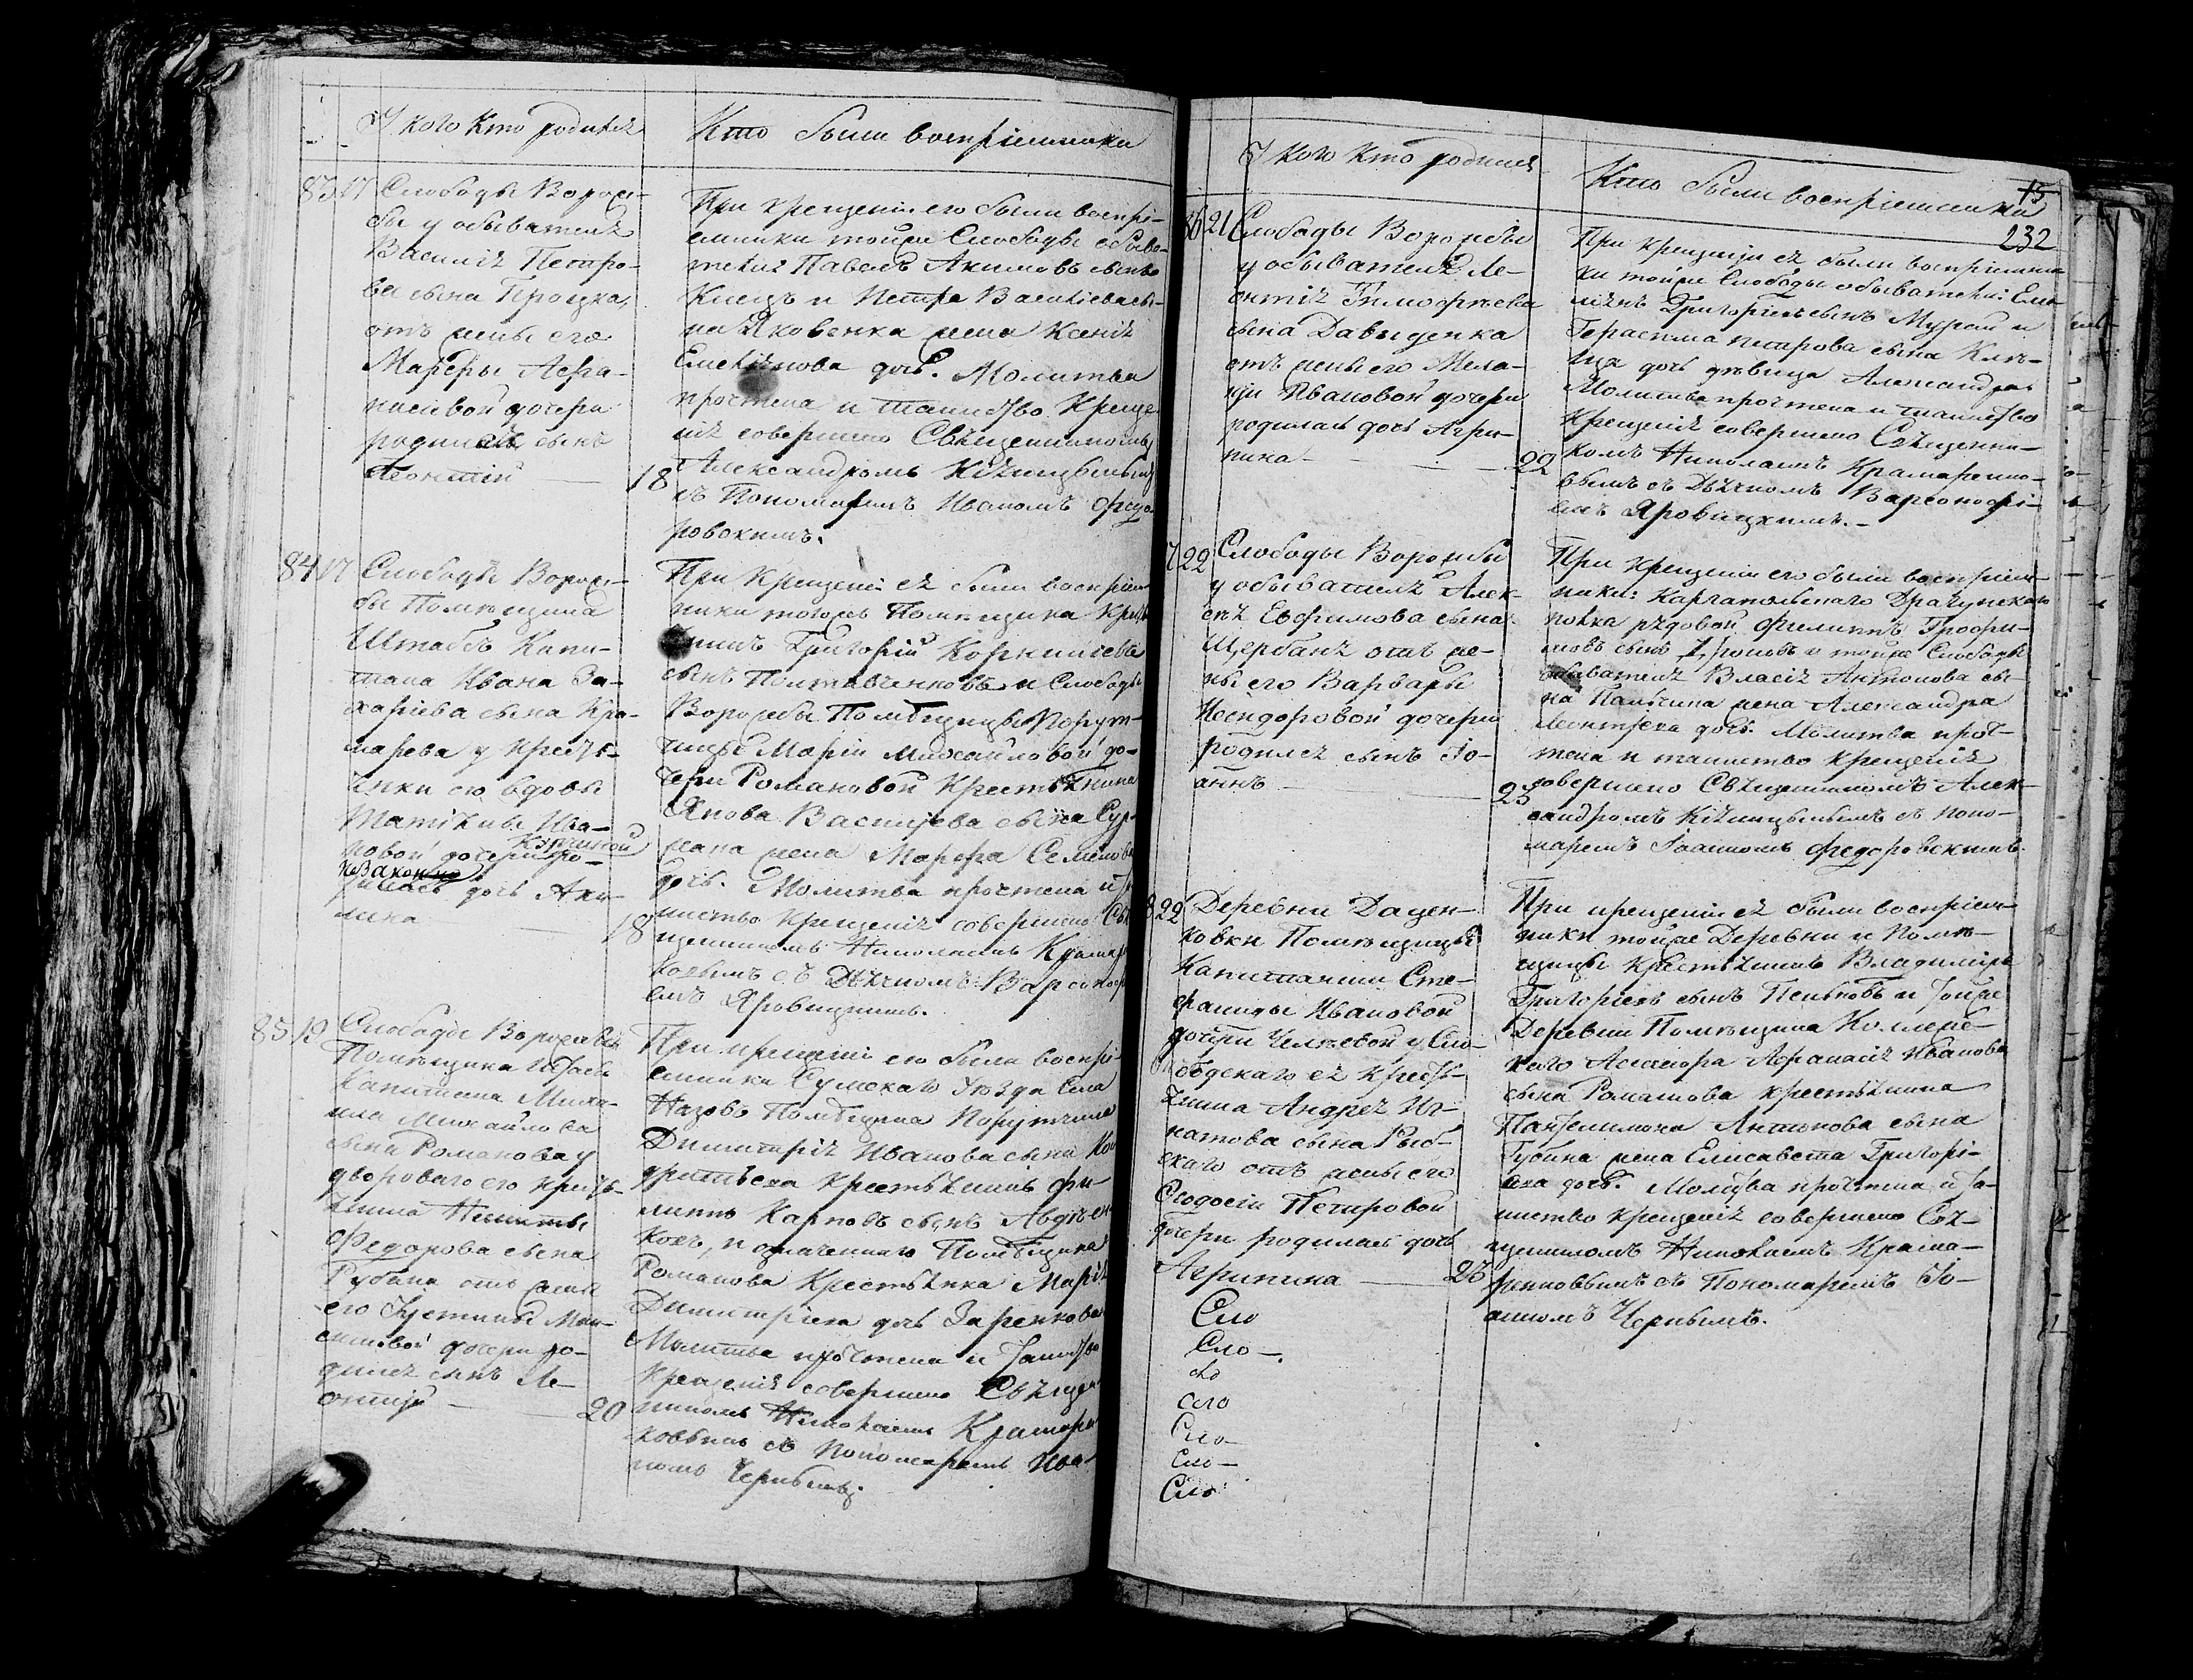 У кого кто родился
Кто были воспріемники
83 17 Слободы Ворож-
бы у обывателя
Василія Петро-
ва сына Процка,
отъ жены его
Марѳы Аѳа-
насіевой дочери
родился сынъ
Леонтій 18
При крещеніи его были воспрі-
емники тойже Слободы обыва-
тели Павелъ Акимовъ сынъ
и Петра Василіева сы-
на Яковенка жена Ксенія
Емельянова дочь. Молитва
прочтена и таинство Креще-
нія совершено Священникомъ
Александромъ
съ Пономаремъ Иваномъ Федо-
ровскимъ.
84 17 Слободы Ворож-
бы Помѣщика
Штабъ Капи-
тана Ивана За-
харіева сына Кра-
марева у крестья-
нки его вдовы
Татіяны Ива-
новой дочери ро-
незаконно
дилась дочь Аки-
лина 18
При Крещеніи ея были воспріем-
ники тогожъ Помѣщика Крестья-
нинъ Григорій
сынъ Полтавченковъ и Слободы
Ворожбы Помѣщицы Порут-
чицы Маріи Михайловой до-
чери Романовой Крестьянина
Якова Василіева сына
жена Марѳа Семенова
дочь. Молитва прочтена и та-
инство крещенія совершено Свя-
щенникомъ Николаемъ Крамарен-
ковымъ съ Дьячкомъ Варсоноѳі-
емъ Яровицкимъ.
85 19 Слободы Ворожбы
Помѣщика Штабъ
Капитана Миха-
ила Михайлова
сына Романова у
двороваго его кресть-
янина Никиты
Федорова сына
Рубана отъ жены
его Устиньи Мак-
симовой дочери ро-
дился сынъ Ле-
онтій 20
При крещеніи его были воспрі-
емники Сумскаго Уѣзда Села
Низовъ Помѣщика Порутчика
Димитрія Иванова сына Кон-
дратьева Крестьянинъ Фи-
липпъ Карповъ сынъ Авдѣен-
ковъ, и означеннаго Помѣщика
Романова Крестьянка Марія
Димитріева дочь Заренкова
Молитва прочтена и Таинство
Крещенія совершено Священ-
никомъ Николаемъ Крамарен-
ковымъ съ Пономаремъ Ива-
номъ Чернымъ.
У кого кто родился
Кто были воспріемники
15
232
86 21 Слободы Ворожбы
у обывателя Ле-
онтія Тимофѣева
сына Давыденка
отъ жены его Мела-
ніи Ивановой дочери
родилась дочь Агри-
пина 22
При крещеніи ея были воспріемни-
ки тойже Слободы обыватели: Еме-
лянъ Григоріевъ сынъ и
Герасима Петрова сына
дочь дѣвица Александра
Молитва прочтена и таинство
Крещенія совершено Священни-
комъ Николаемъ Крамаренко-
вымъ съ Дьячкомъ Варсонофі-
емъ Яровицкимъ.
7 22 Слободы Ворожбы
у обывателя Алек-
сѣя Евфимова сына
Щербаня отъ же-
ны его Варвары
Исидоровой дочери
родился сынъ Іо-
аннъ 23
При крещеніи его были воспріем-
ники: Каргапольскаго Драгунскаго
полка рядовой Филиппъ Трофи-
мовъ сынъ и тойже Слободы
обывателя Власія Антонова сы-
на жена Александра
Леонтьева дочь. Молитва проч-
тена и таинство крещенія
совершено Священникомъ Алек-
сандромъ съ поно-
маремъ Іоанномъ Федоровскимъ.
8 22 Деревни Дацен-
ковки Помѣщицы
Капитанши Сте-
фаниды Ивановой
дочери у Сло-
бодскаго ея кресть-
янина Андрея Иг-
натова сына Рыб-
скаго отъ жены его
Ѳеодосіи Петровой
дочери родилась дочь
Агрипина 23
При крещеніи ея были воспріем-
ники тойже Деревни и Помѣ-
щицы Крестьянинъ Владиміръ
Григоріевъ сынъ Пеньковъ и тойже
Деревни Помѣщика Коллеж-
скаго Ассесора Афанасія Иванова
сына Романова крестьянина
Пантелимона Антонова сына
Губина жена Елисавета Григорі-
ева дочь. Молитва прочтена и та-
инство крещенія совершено Свя-
щенникомъ Николаемъ Крама-
ренковымъ съ Пономаремъ Іо-
анномъ Чернымъ.
Сло
Сло-
сло
сло
Сло-
Сло-
Сло